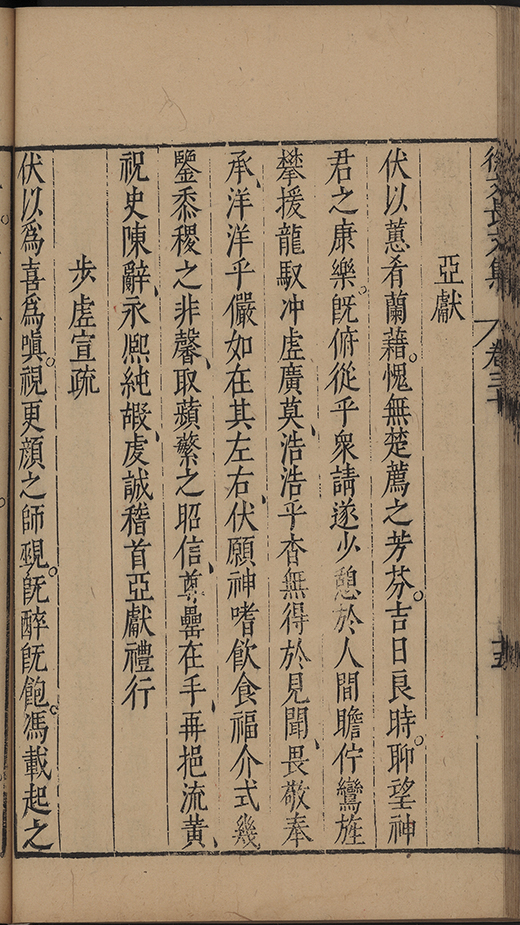 徐文長文集 卷三十
亞獻
伏以蕙肴蘭藉。愧無楚薦之芳芬。吉日良時。聊望神
君之康樂。旣俯從乎衆請遂少憩於人間瞻佇鸞旌
攀援龍馭冲虛廣莫、浩浩乎杳無得於見聞、畏敬奉
承、洋洋乎儼如在其左右、伏願神嗜飮食福介式幾
鑒黍稷之非馨、取蘋蘩之昭信、尊罍在手、再挹流黄、
祝史陳辭、永熙純嘏、虔誠稽首亞獻禮行
步虛宣疏
伏以爲喜爲嗔。視更顔之師覡。旣醉旣飽。馮載起之